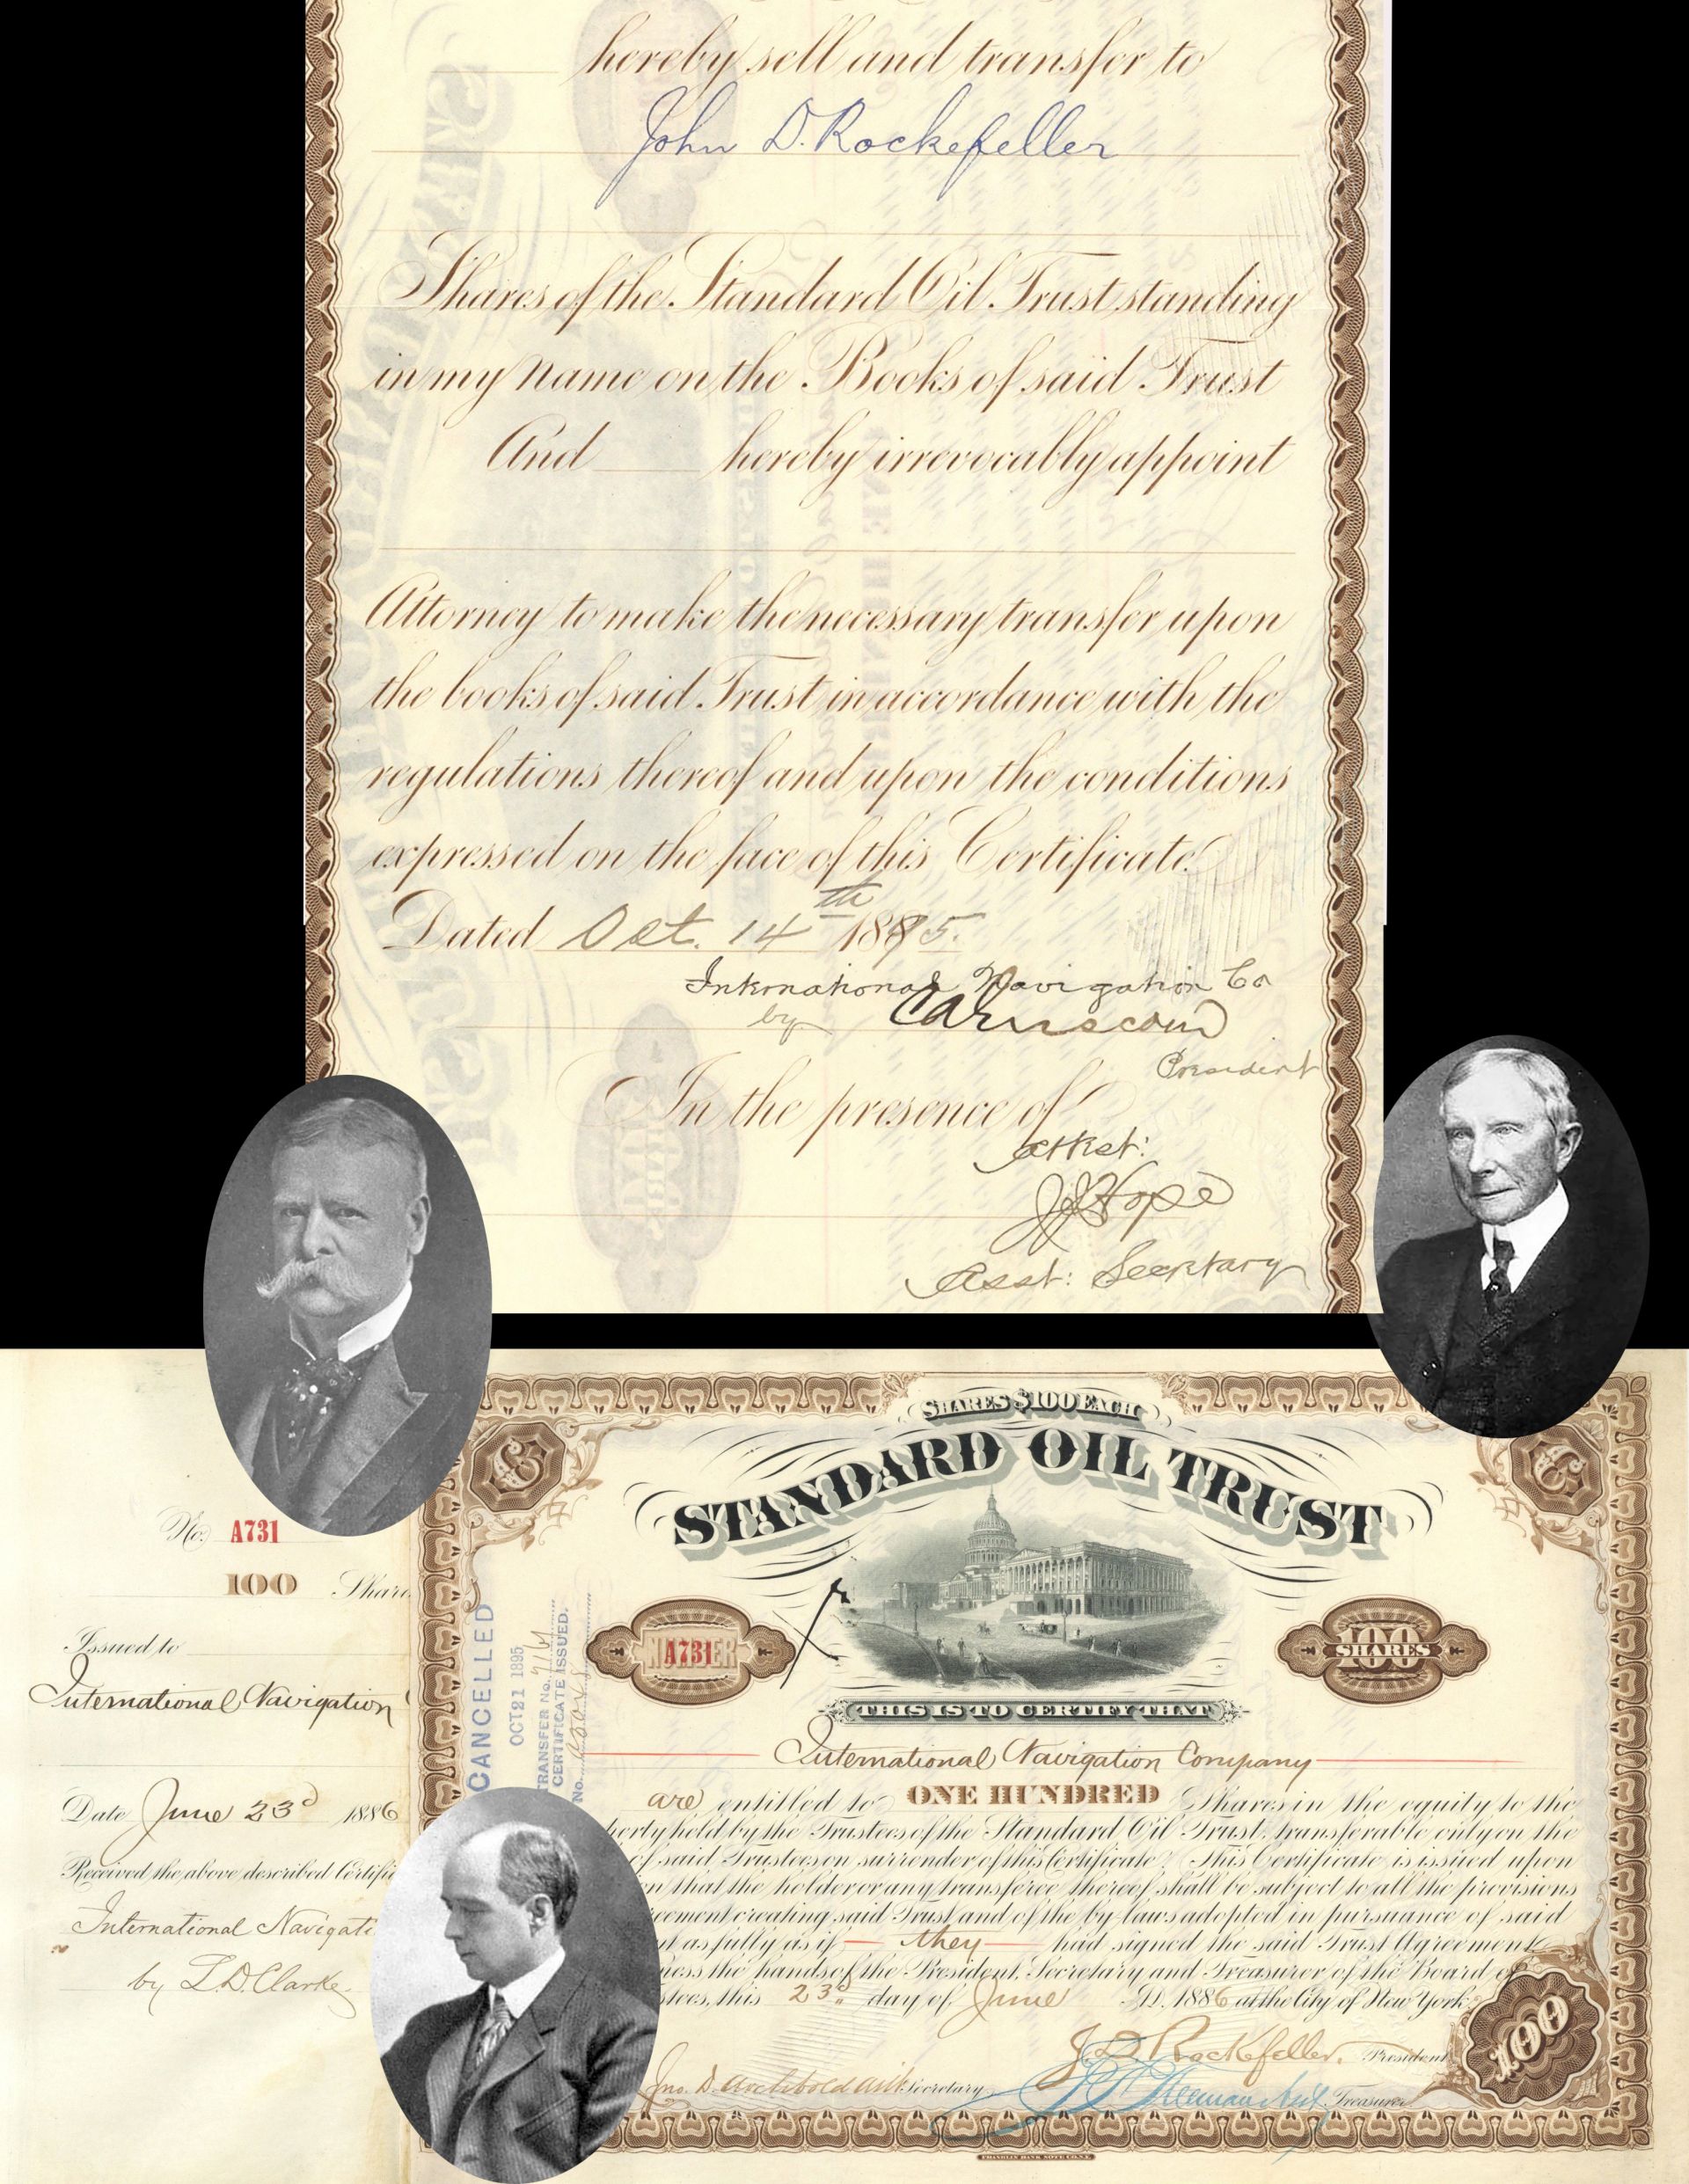 hereby sell and transfer to
John D. Rockefeller
Shares of the Standard Oil Trust standing
in my name on the Books of said Trust
And hereby irrevocably appoint
Attorney to make the necessary transfer upon
the books of said Trust in accordance with the
regulations thereof and upon the conditions
expressed on the face of this Certificate.
Dated Oct. 14th 1895.
International Navigation Co
by
President
In the presence of
Attest:
J J Hope
Asst: Secretary
No. A731
100 Share
Issued to
International Navigation
Date June 23d 1886
Received the above described Certifi
International Navigati
by L.D. Clarke
CANCELLED
OCT 21 1895
TRANSFER No.
CERTIFICATE ISSUED.
No.
SHARES $100 EACH
STANDARD OIL TRUST
NUMBER
A731
100
SHARES
THIS IS TO CERTIFY THAT
International Navigation Company
are entitled to ONE HUNDRED Shares in the equity to the
perty held by the Trustees of the Standard Oil Trust, transferable only on the
of said Trustees on surrender of this Certificate. This Certificate is issued upon
on that the holder or any transferee thereof shall be subject to all the provisions
reement creating said Trust and of the by-laws adopted in pursuance of said
nt as fully as if they had signed the said Trust Agreement
ness the hands of the President, Secretary and Treasurer of the Board of
stees, this 23d day of June A.D. 1886 at the City of New York.
J. D. Rockefeller. President
Jno. D. Archbold Secretary
Treasurer
100
FRANKLIN BANK NOTE CO. N.Y.